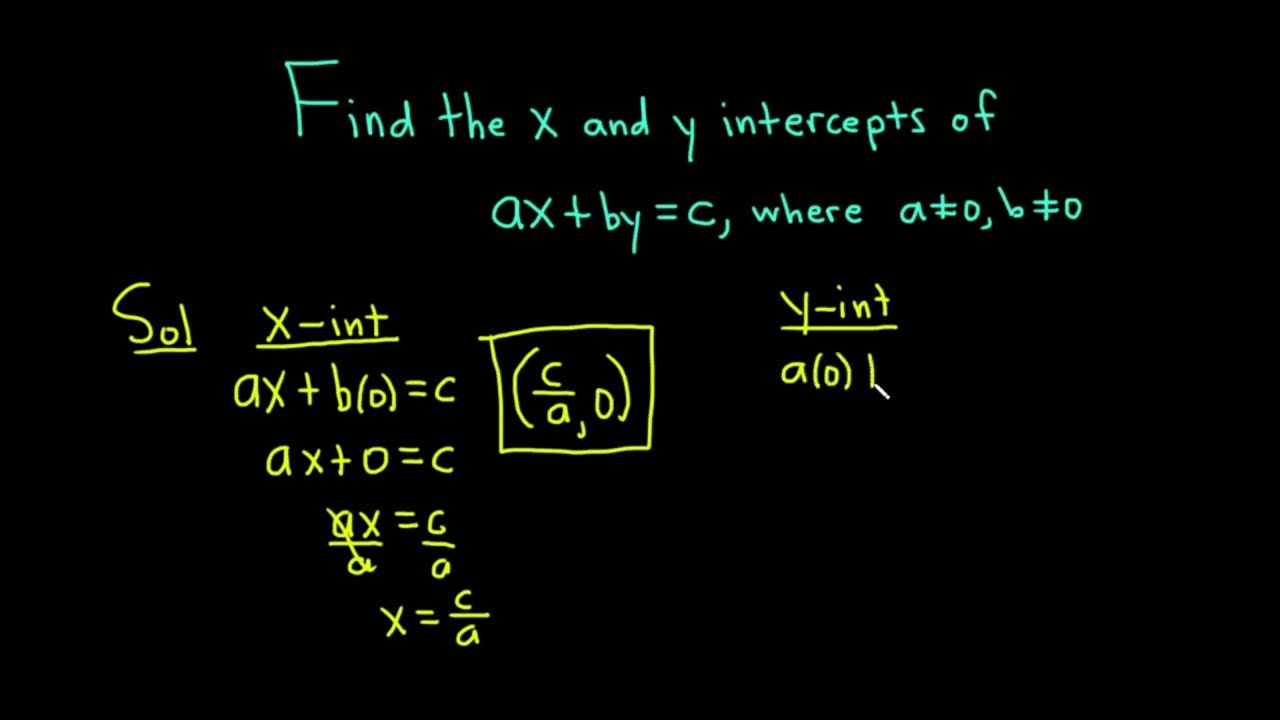 Find the x and y intercepts of
ax + by = c, where a ≠ 0, b ≠ 0
Sol
x-int
ax + b(0) = c
ax + 0 = c
ax/a = c/a
x = c/a
(c/a, 0)
y-int
a(0)